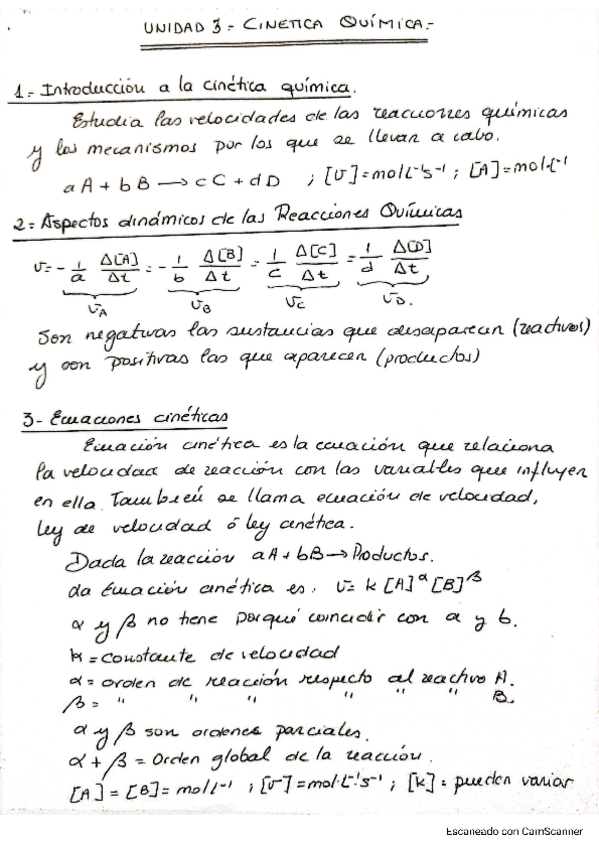 UNIDAD 3.- CINETICA QUÍMICA.-
1.- Introducción a la cinética química.
Estudia las velocidades de las reacciones químicas
y los mecanismos por los que se llevan a cabo.
aA + bB → cC + dD ; [v] = mol·L⁻¹s⁻¹ ; [A] = mol·L⁻¹
2.- Aspectos dinámicos de las Reacciones Químicas
v = - 1/a Δ[A]/Δt = - 1/b Δ[B]/Δt = 1/c Δ[C]/Δt = 1/d Δ[D]/Δt
vA vB vC vD.
Son negativas las sustancias que desaparecen (reactivos)
y son positivas las que aparecen (productos)
3- Ecuaciones cinéticas
Ecuación cinética es la ecuación que relaciona
la velocidad de reacción con las variables que influyen
en ella. También se llama ecuación de velocidad,
ley de velocidad ó ley cinética.
Dada la reacción aA + bB → Productos.
La Ecuación cinética es: v = k [A]^α [B]^β
α y β no tiene porqué coincidir con a y b.
k = constante de velocidad
α = orden de reacción respecto al reactivo A.
β = " " " " " " B.
α y β son ordenes parciales.
α + β = Orden global de la reacción.
[A] = [B] = mol L⁻¹ ; [v] = mol·L⁻¹s⁻¹ ; [k] = pueden variar
Escaneado con CamScanner